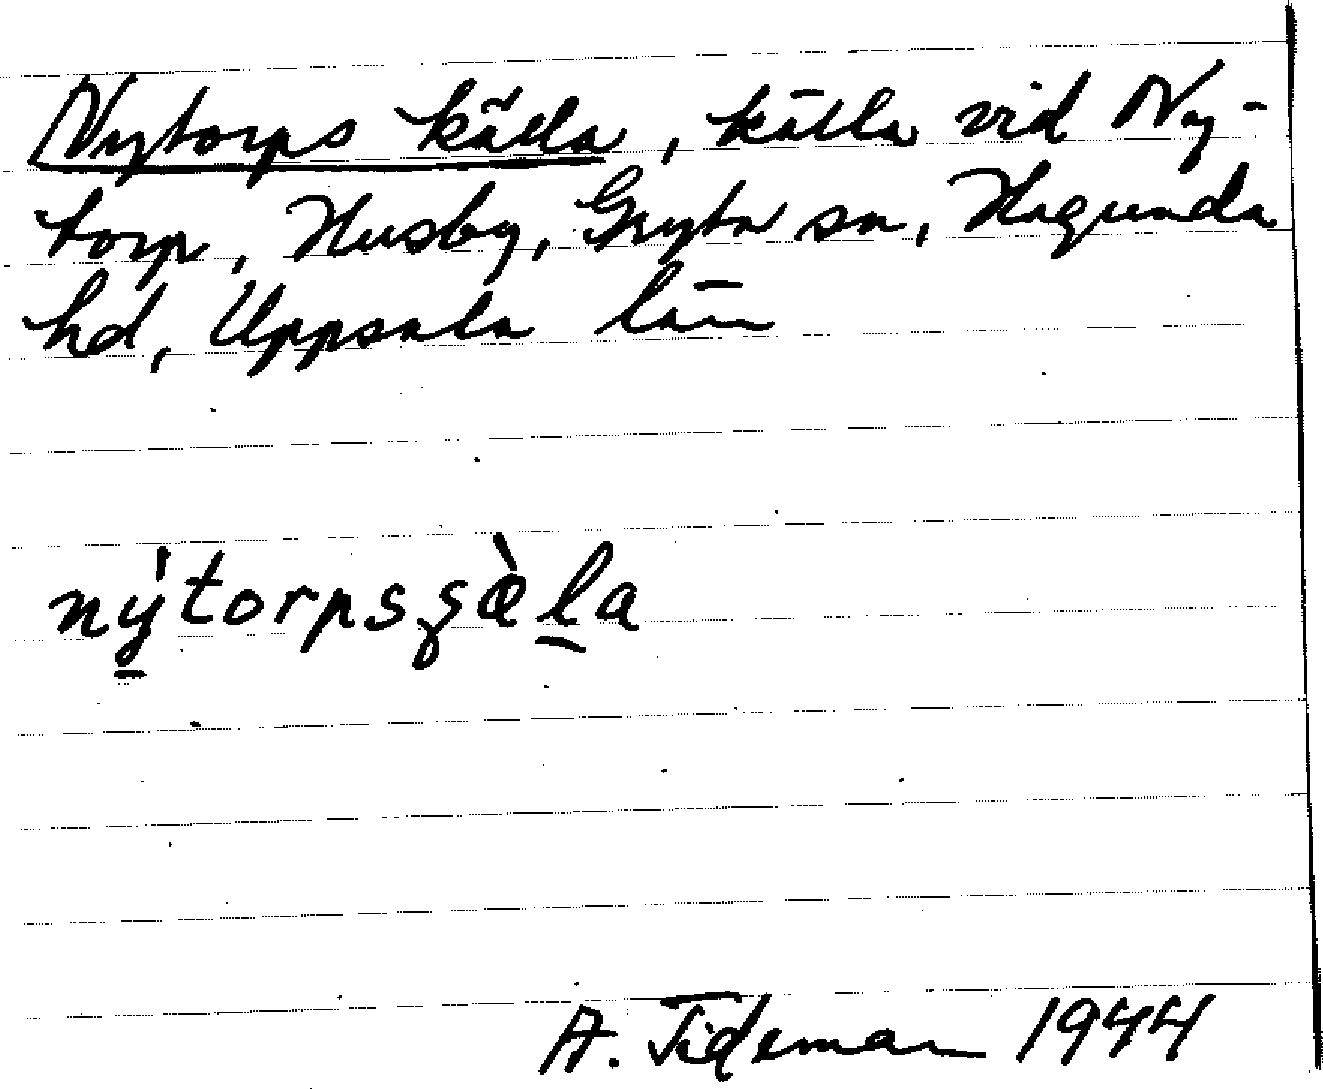 Nytorps källa, källa vid Ny-
torp, Husby, Gryta sn, Hagunda
hd, Uppsala län
A. Tideman 1944